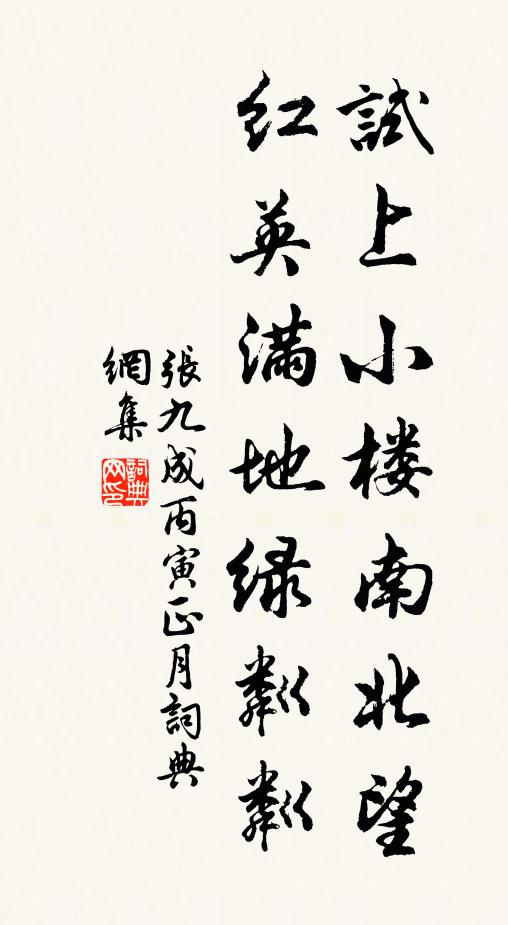 試上小楼南北望
红英满地绿粼粼
張九成丙寅正月詞典
網集
詞典网印